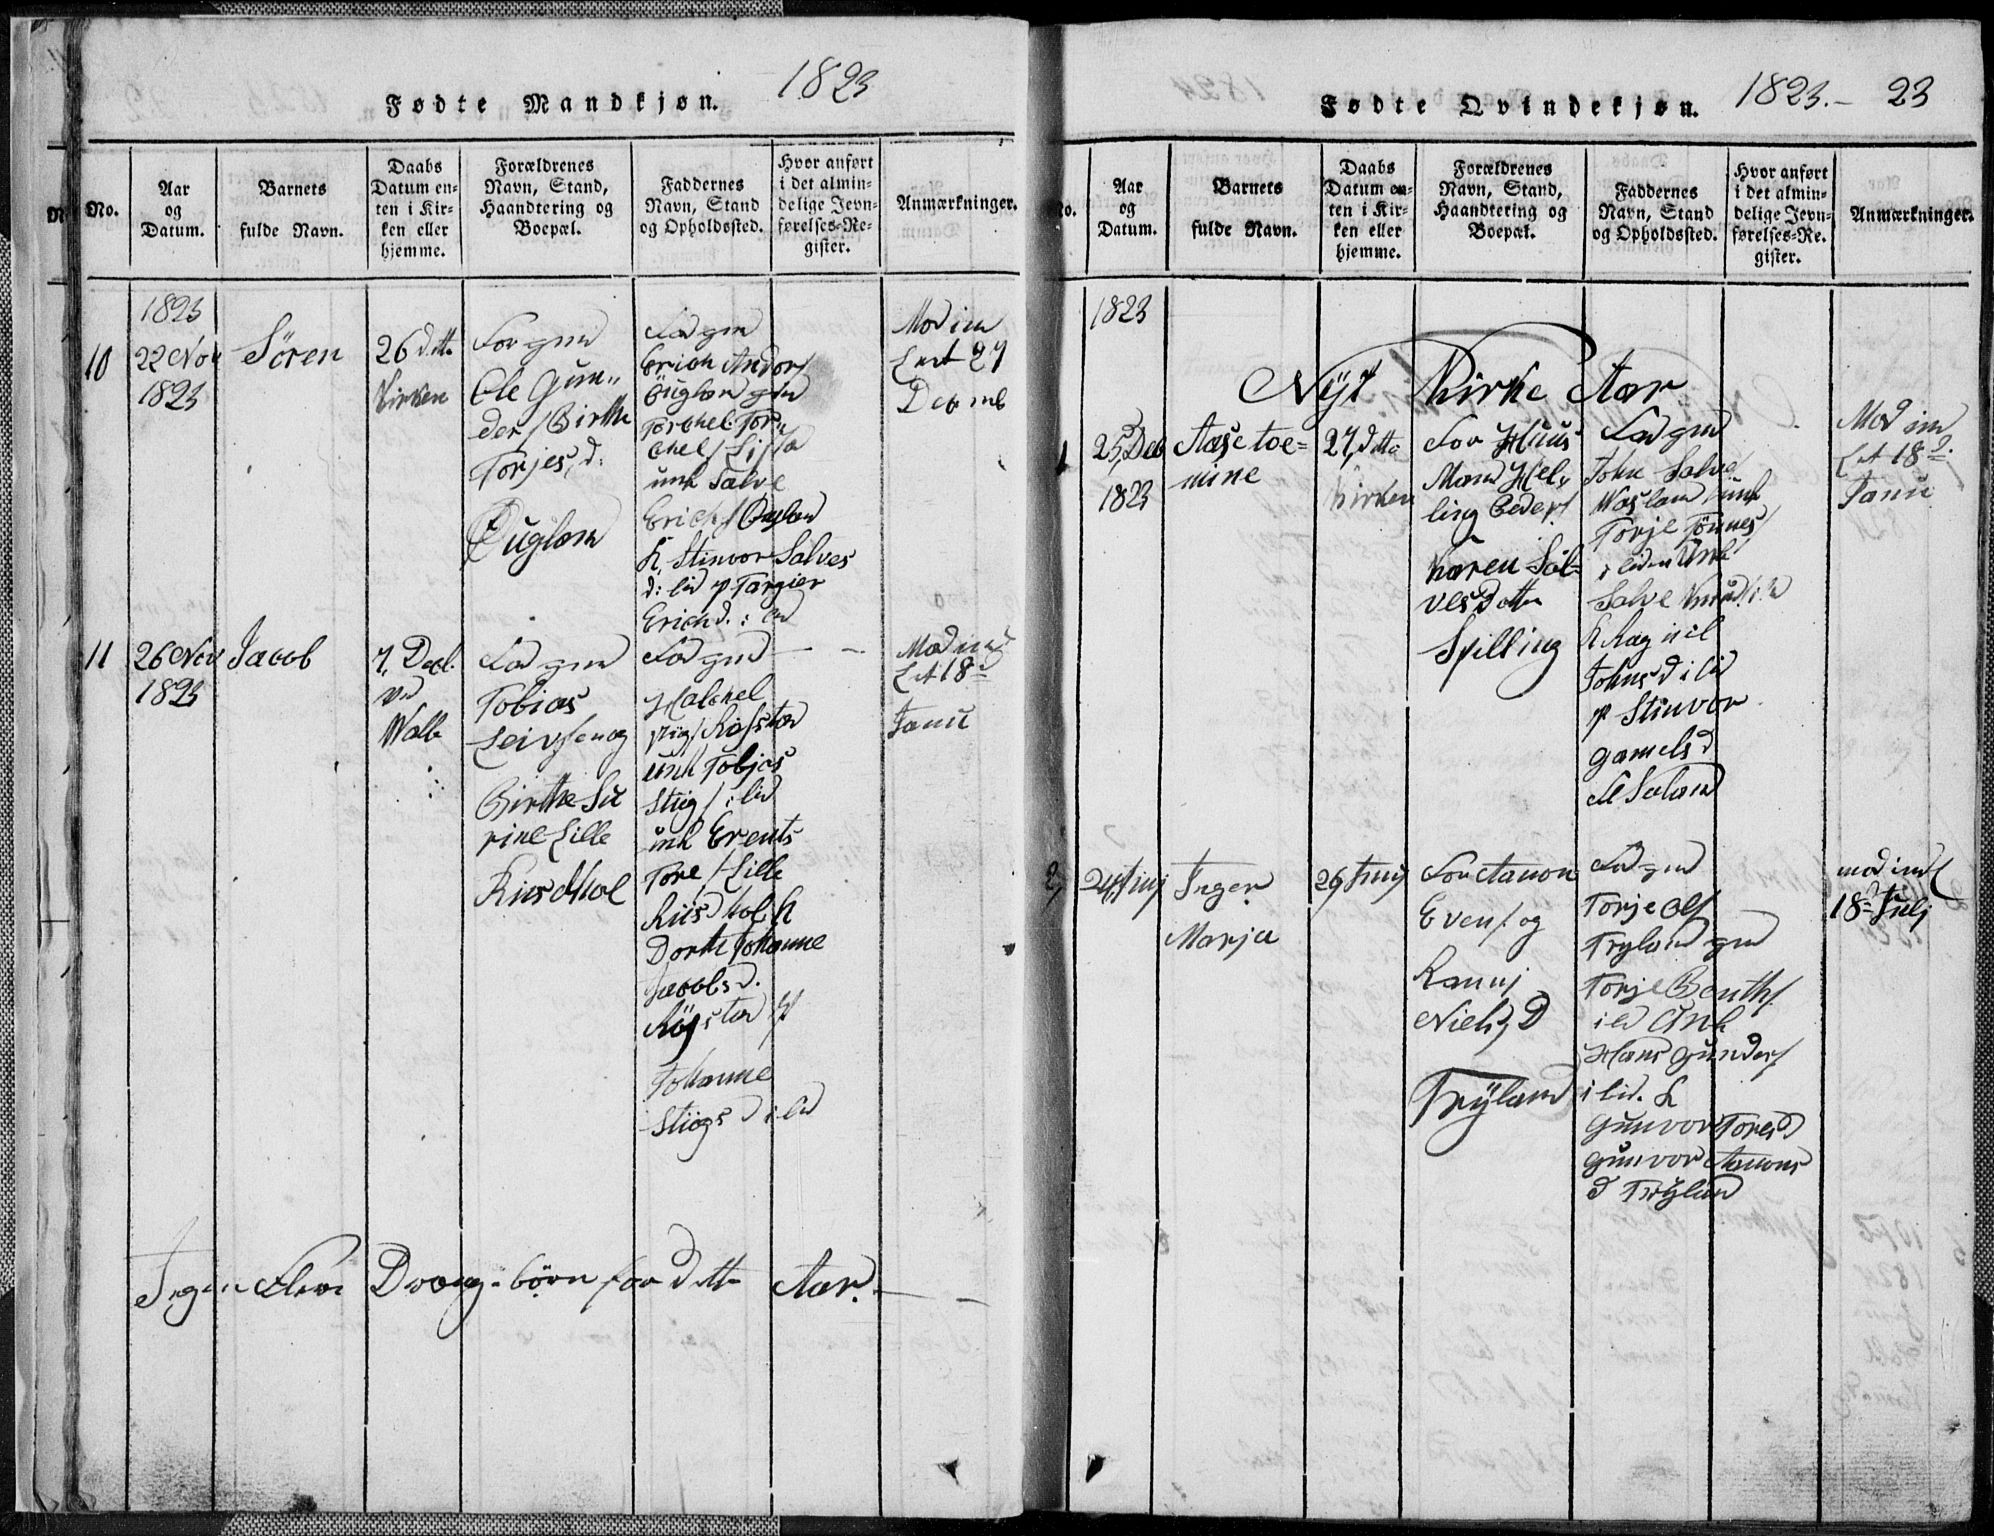 Fødte Mandkjøn. 1823
No.
Aar
og
Datum.
Barnets
fulde Navn.
Daabs
Datum en-
ten i Kir-
ken eller
hjemme.
Forældrenes
Navn, Stand,
Haandtering og
Boepæl.
Faddernes
Navn, Stand
og Opholdssted.
Hvor anført
i det almin-
delige Jevn-
førelses-Re-
gister.
Anmærkninger.
10
1823
22 Nov
1823
Sören
26 ditto
Kirken
For gm
Ole Gun„
der / Birthe
Torjes, d:
Öuglan
Fad gm
Erich Anders/
Öugland gm
Torchel Tor„
chel /
unk Salve
Erich / Öugland
K. Stinvor Salves
d: ibid p Targier
Erichd. ibid
Mod im
Lest 27
Decemb
11
26 Nov
1823
Jacob
7, Decb.
Valle
Fad gm
Tobias
Leivsen og
Birthe Su
rine Lille
Riisdthol
Fad gm
Halchel
Stig / Røjstad
unk Tobjas
Stiig / ibid
unk Erents
Tore / Lille
Riisdhol K
Dorthe Johanne
Jacobsd.
Røjstad p
Johanne
Stiigs d ibid
Mod im
Let 18d
Janu
Ingen Flere Dreng-børn for dette Aar.
Fødte Qvindekjøn. 1823.- 23
No.
Aar
og
Datum.
Barnets
fulde Navn.
Daabs
Datum en-
ten i Kir-
ken eller
hjemme.
Forældrenes
Navn, Stand,
Haandtering og
Boepæl.
Faddernes
Navn, Stand
og Opholdssted.
Hvor anført
i det almin-
delige Jevn-
førelses-Re-
gister.
Anmærkninger.
1823
Nÿt Kirke Aar
1
25, Deb
1823
Aase toe=
mine
27, ditto
Kirken
For Huus
Mand Hel„
ling Peder/
Karen Sal=
vesdotter
Spilling
Fad gm
John Salve/
unk
Torje Tønnes/
ibidem Unk
Salve Knud/ ib
K Ragnil
Johnsd ibid
p Stinvor
gamelsd
Mod im
Let 18d.
Janu
2,
24 Junj
Inger
Marja
26 Junj
For Aanon
Even/ og
Rannj
Niels, D
Trÿland
Fad gm
Torje Ols/
Tryland gm
Torje Benth/
ibd Unk
Hans Gunders/
ibid. K
Gunvor Toresd
Gunvor Aanons
d Trÿland
mod indl
18d Julj